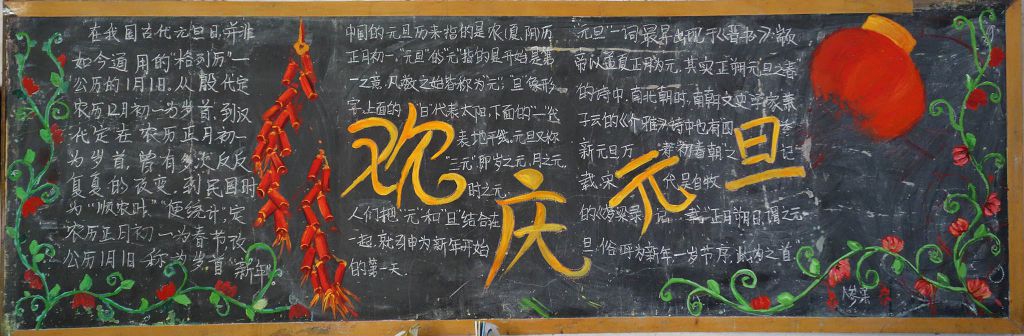 在我国古代元旦日,并非
如今通用的"格列历"一
公历的1月1日.从殷代定
农历12月初一为岁首,到汉
代定在农历正月初一
为岁首,曾有多次反反
复复的改变.到民国时
为"顺农时""便统计",定
农历正月初一为春节.改
公历1月1日称为岁首"新年"
中国的元旦历来指的是农(夏、阴)历
正月初一."元旦"的"元"指的是开始是第
一之意,凡数之始皆称为"元";"旦"像形
字上面的"日"代表太阳,下面的"一"代
表地平线.元旦又称
"三元"即岁之元、月之元、
时之元.
人们把"元"和"旦"结合在
一起,就引申为新年开始
的第一天.
"元旦"一词最早出现于《晋书》:
帝以孟夏正月为元,其实正朔元旦之春"
的诗中.南北朝时,南朝文史学家萧
子云的《介雅》诗中也有
新元旦万 初春朝"之 记
载.宋 代吴自牧
的《梦粱录》 "正月朔日,谓之元
旦,俗呼为新年.一岁节序,此为之首
欢庆元旦